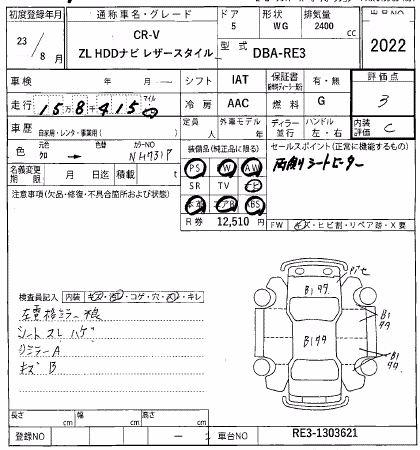 初度登録年月 通称車名・グレード ドア 形状 排気量 出品NO
23/8月 CR-V 5 WG 2400 cc
ZL HDDナビ レザースタイル 型式 DBA-RE3 2022
車検 年 月 シフト IAT 保証書 有・無 評価点
走行 15万8千415 マイル 冷房 AAC 燃料 G 3
車歴 自家用・レンタ・事業用( ) 定員 外車モデル ディーラー 並行 ハンドル 左・右 内装評価 C
色 元色 クロ → 色替 カラーNO NH731P 装備品(純正品に限る) セールスポイント(正常に機能するもの)
名義変更期限 月 日迄 積載 t PS PW AW 両側シートヒーター
注意事項(欠品・修復・不具合箇所および状態) SR TV ナビ
本革 エアB ABS
R券 12,510 円 FW キズ・ヒビ割・リペア跡・X要
検査員記入 内装 キズ・汚・コゲ・穴・スレ・キレ
左電格ミラー
シートスレ ハゲ
ミラーA
キズB
サヒ
B1 77
B1 77
B1 77
B1 77
長さ cm 幅 cm 高さ cm
登録NO ー 車台NO RE3-1303621